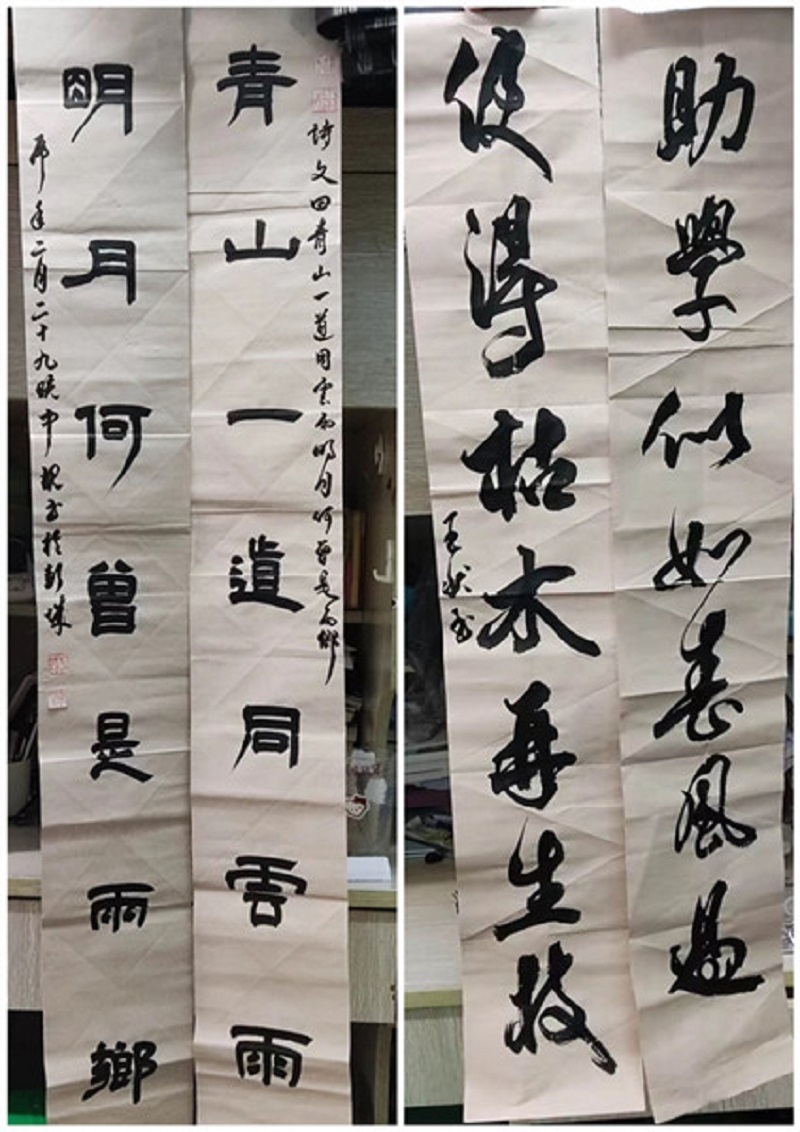 青山一道同雲雨
詩文曰青山一道同雲雨明月何曾是兩鄉
明月何曾是兩鄉
年二月二十九晚中
助學似如春風過
使得枯木再生枝